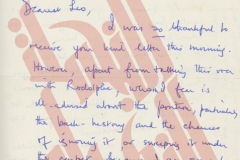 Dearest Leo,
I was so thankful to
receive your kind letter this morning.
However, apart from talking this over
with Rodolphe, whom I feel is
ill-advised about the position, particularly
the back-history and the chances
of ignoring it or sweeping it under
the carpet